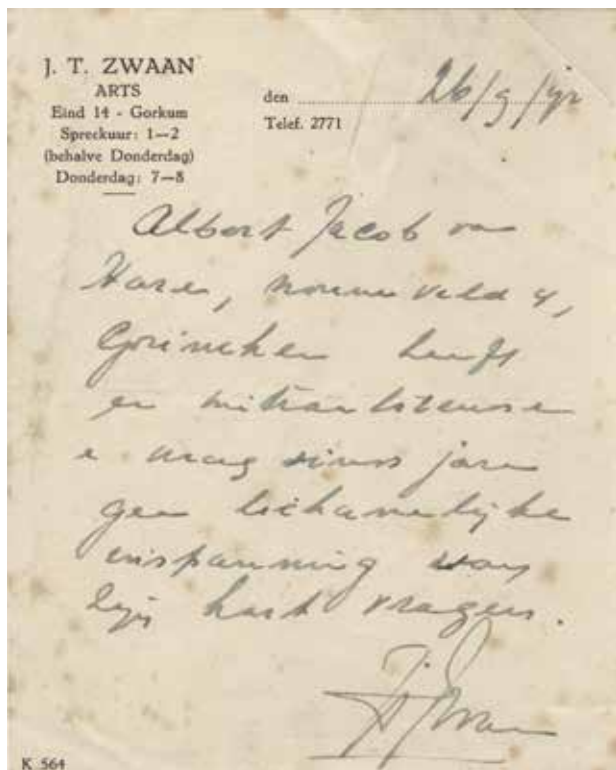 J. T. ZWAAN
ARTS
Eind 14 - Gorkum
Spreekuur: 1—2
(behalve Donderdag)
Donderdag: 7—8
den 26/9/
Telef. 2771
Albert Jacob van
Haren, nonnenveld 4,
Gorinchem heeft
een mitraalstenose
e mag sinds jaren
geen lichamelijke
inspanning van
zijn hart vragen.
JTZwaan
K 564